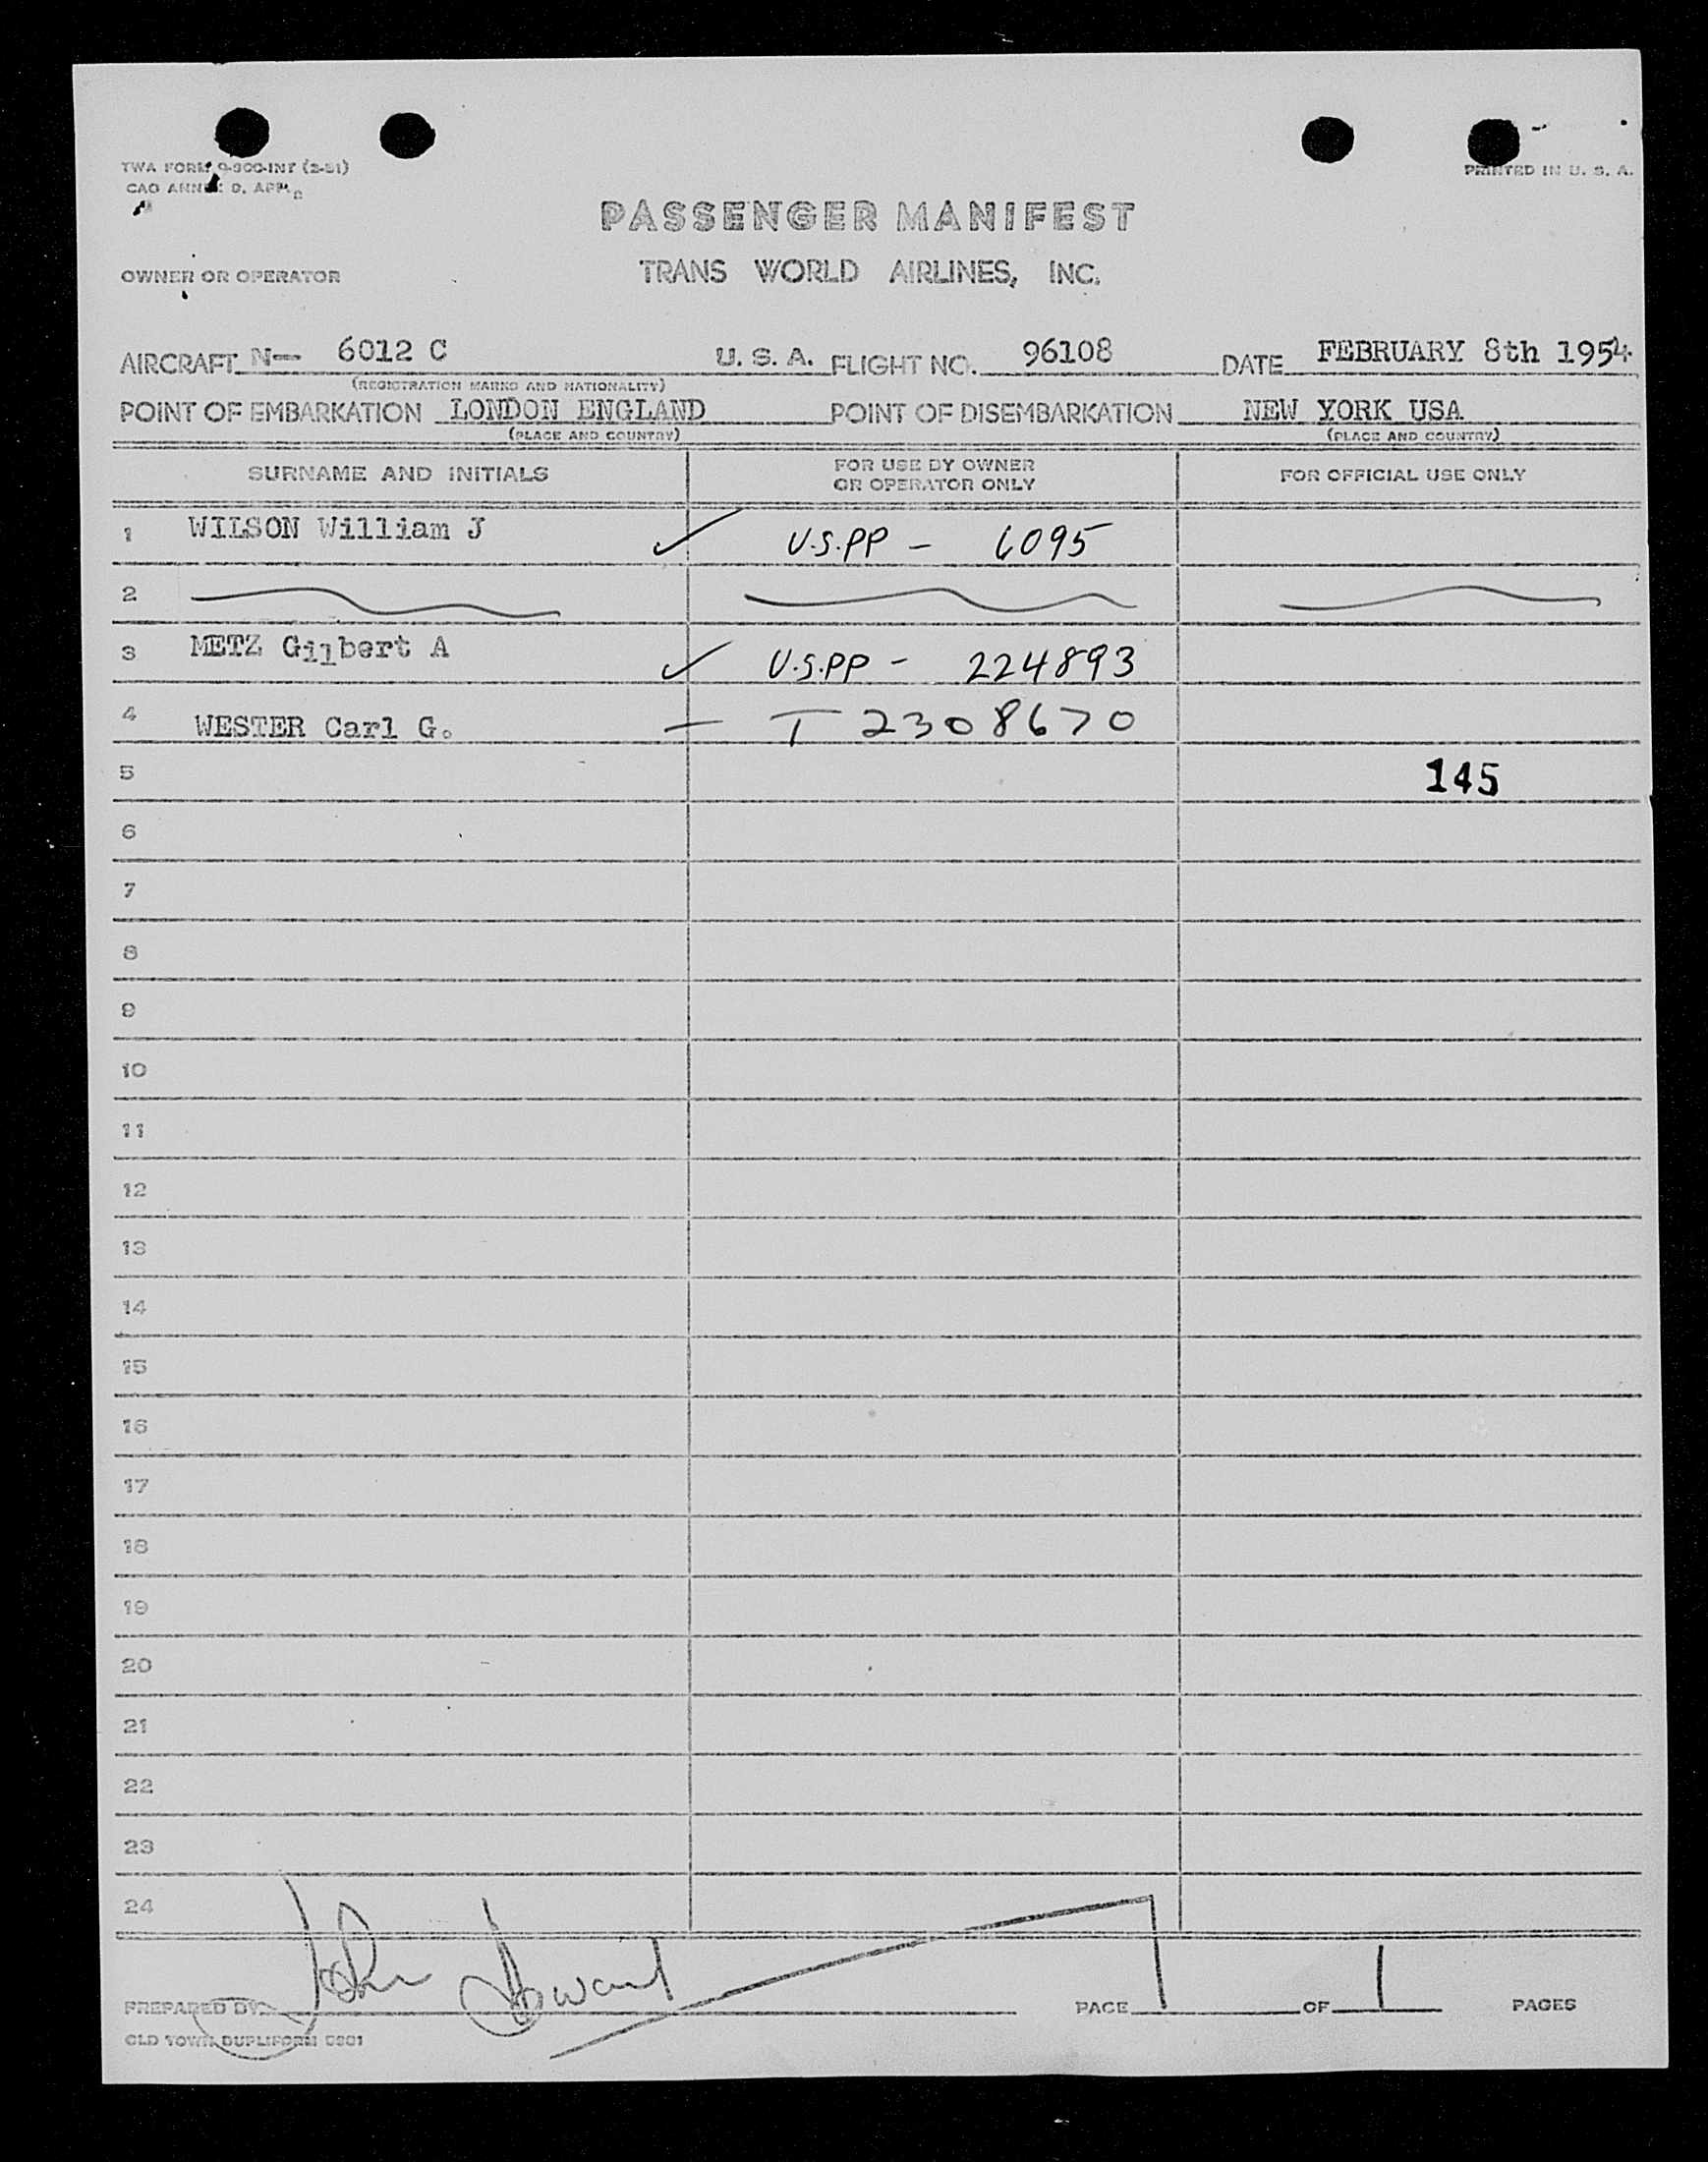 TWA FORM O-900-INT (2-51)
PRINTED IN U. S. A.
PASSENGER MANIFEST
OWNER OR OPERATOR TRANS WORLD AIRLINES, INC.
AIRCRAFT N— 6012 C U. S. A. FLIGHT NO. 96108 DATE FEBRUARY 8th 1954
(REGISTRATION MARKS AND NATIONALITY)
POINT OF EMBARKATION LONDON ENGLAND POINT OF DISEMBARKATION NEW YORK USA
(PLACE AND COUNTRY) (PLACE AND COUNTRY)
SURNAME AND INITIALS FOR USE BY OWNER OR OPERATOR ONLY FOR OFFICIAL USE ONLY
1 WILSON William J ✓ U.S.PP – 6095
2
3 METZ Gilbert A ✓ U.S.PP – 224893
4 WESTER Carl G. – T 2308670
5 145
6
7
8
9
10
11
12
13
14
15
16
17
18
19
20
21
22
23
24
PREPARED BY John PAGE 1 OF 1 PAGES
OLD TOWN DUPLIFORM